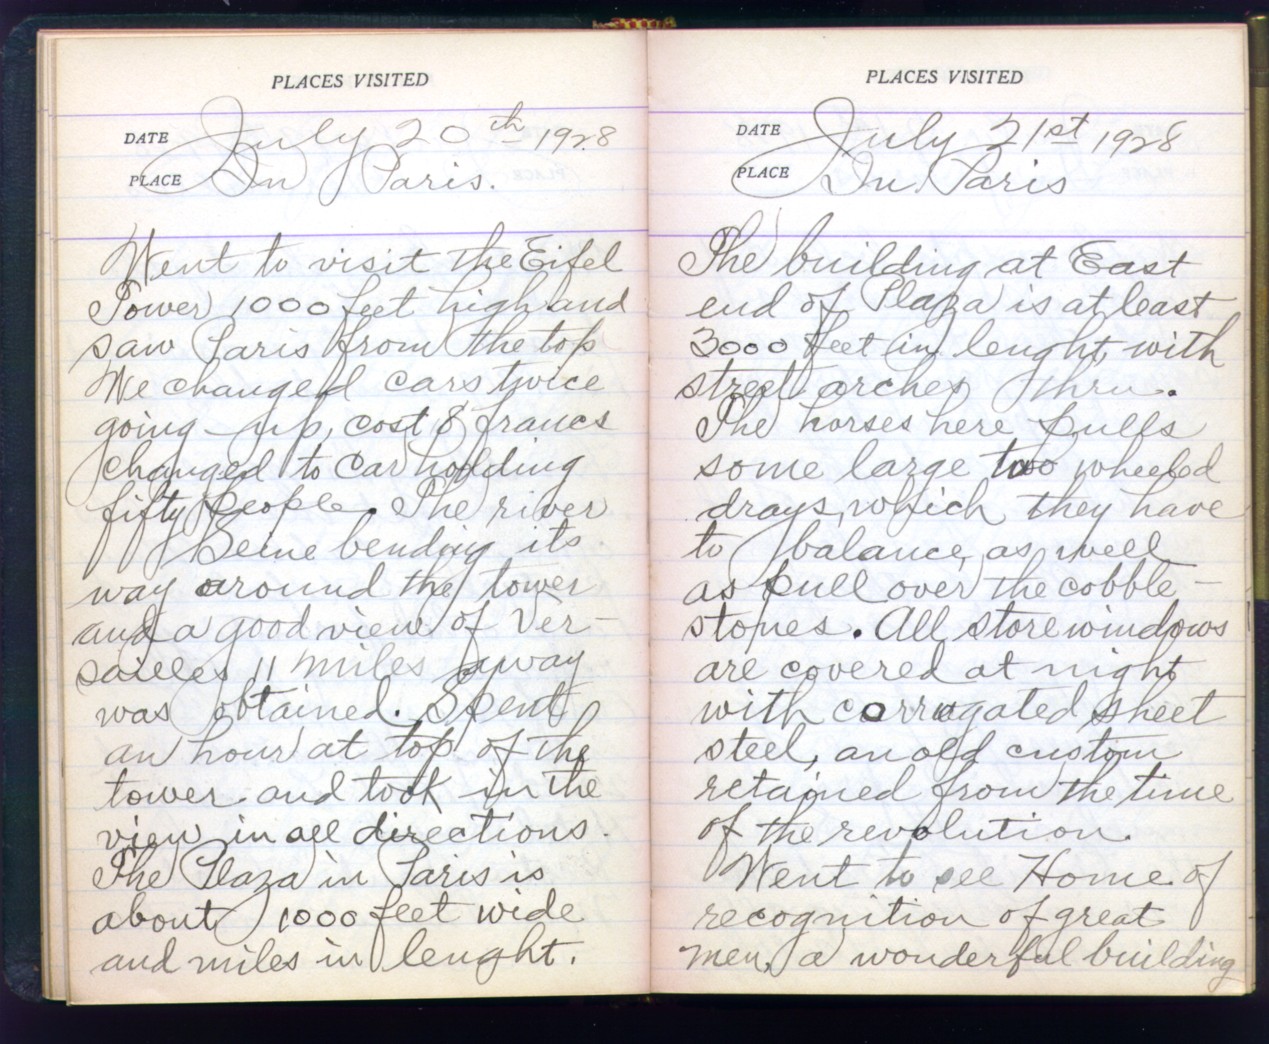 PLACES VISITED
DATE July 20th 1928
PLACE In Paris.
Went to visit the Eifel
Tower 1000 feet high and
saw Paris from the top
We changed cars twice
going up, cost 8 francs
changed to car holding
fifty people. The river
Seine bending its
way around the tower
and a good view of Ver-
sailles 11 miles away
was obtained. Spent
an hour at top of the
tower and took in the
view in all directions.
The Plaza in Paris is
about 1000 feet wide
and miles in lenght.
PLACES VISITED
DATE July 21st 1928
PLACE In Paris
The building at East
end of Plaza is at least
3000 feet in lenght, with
street arches thru.
The horses here pulls
some large two wheeled
drays, which they have
to balance, as well
as pull over the cobble-
stones. All store windows
are covered at night
with corrugated sheet
steel, an old custom
retained from the time
of the revolution.
Went to see Home of
recognition of great
men, a wonderful building